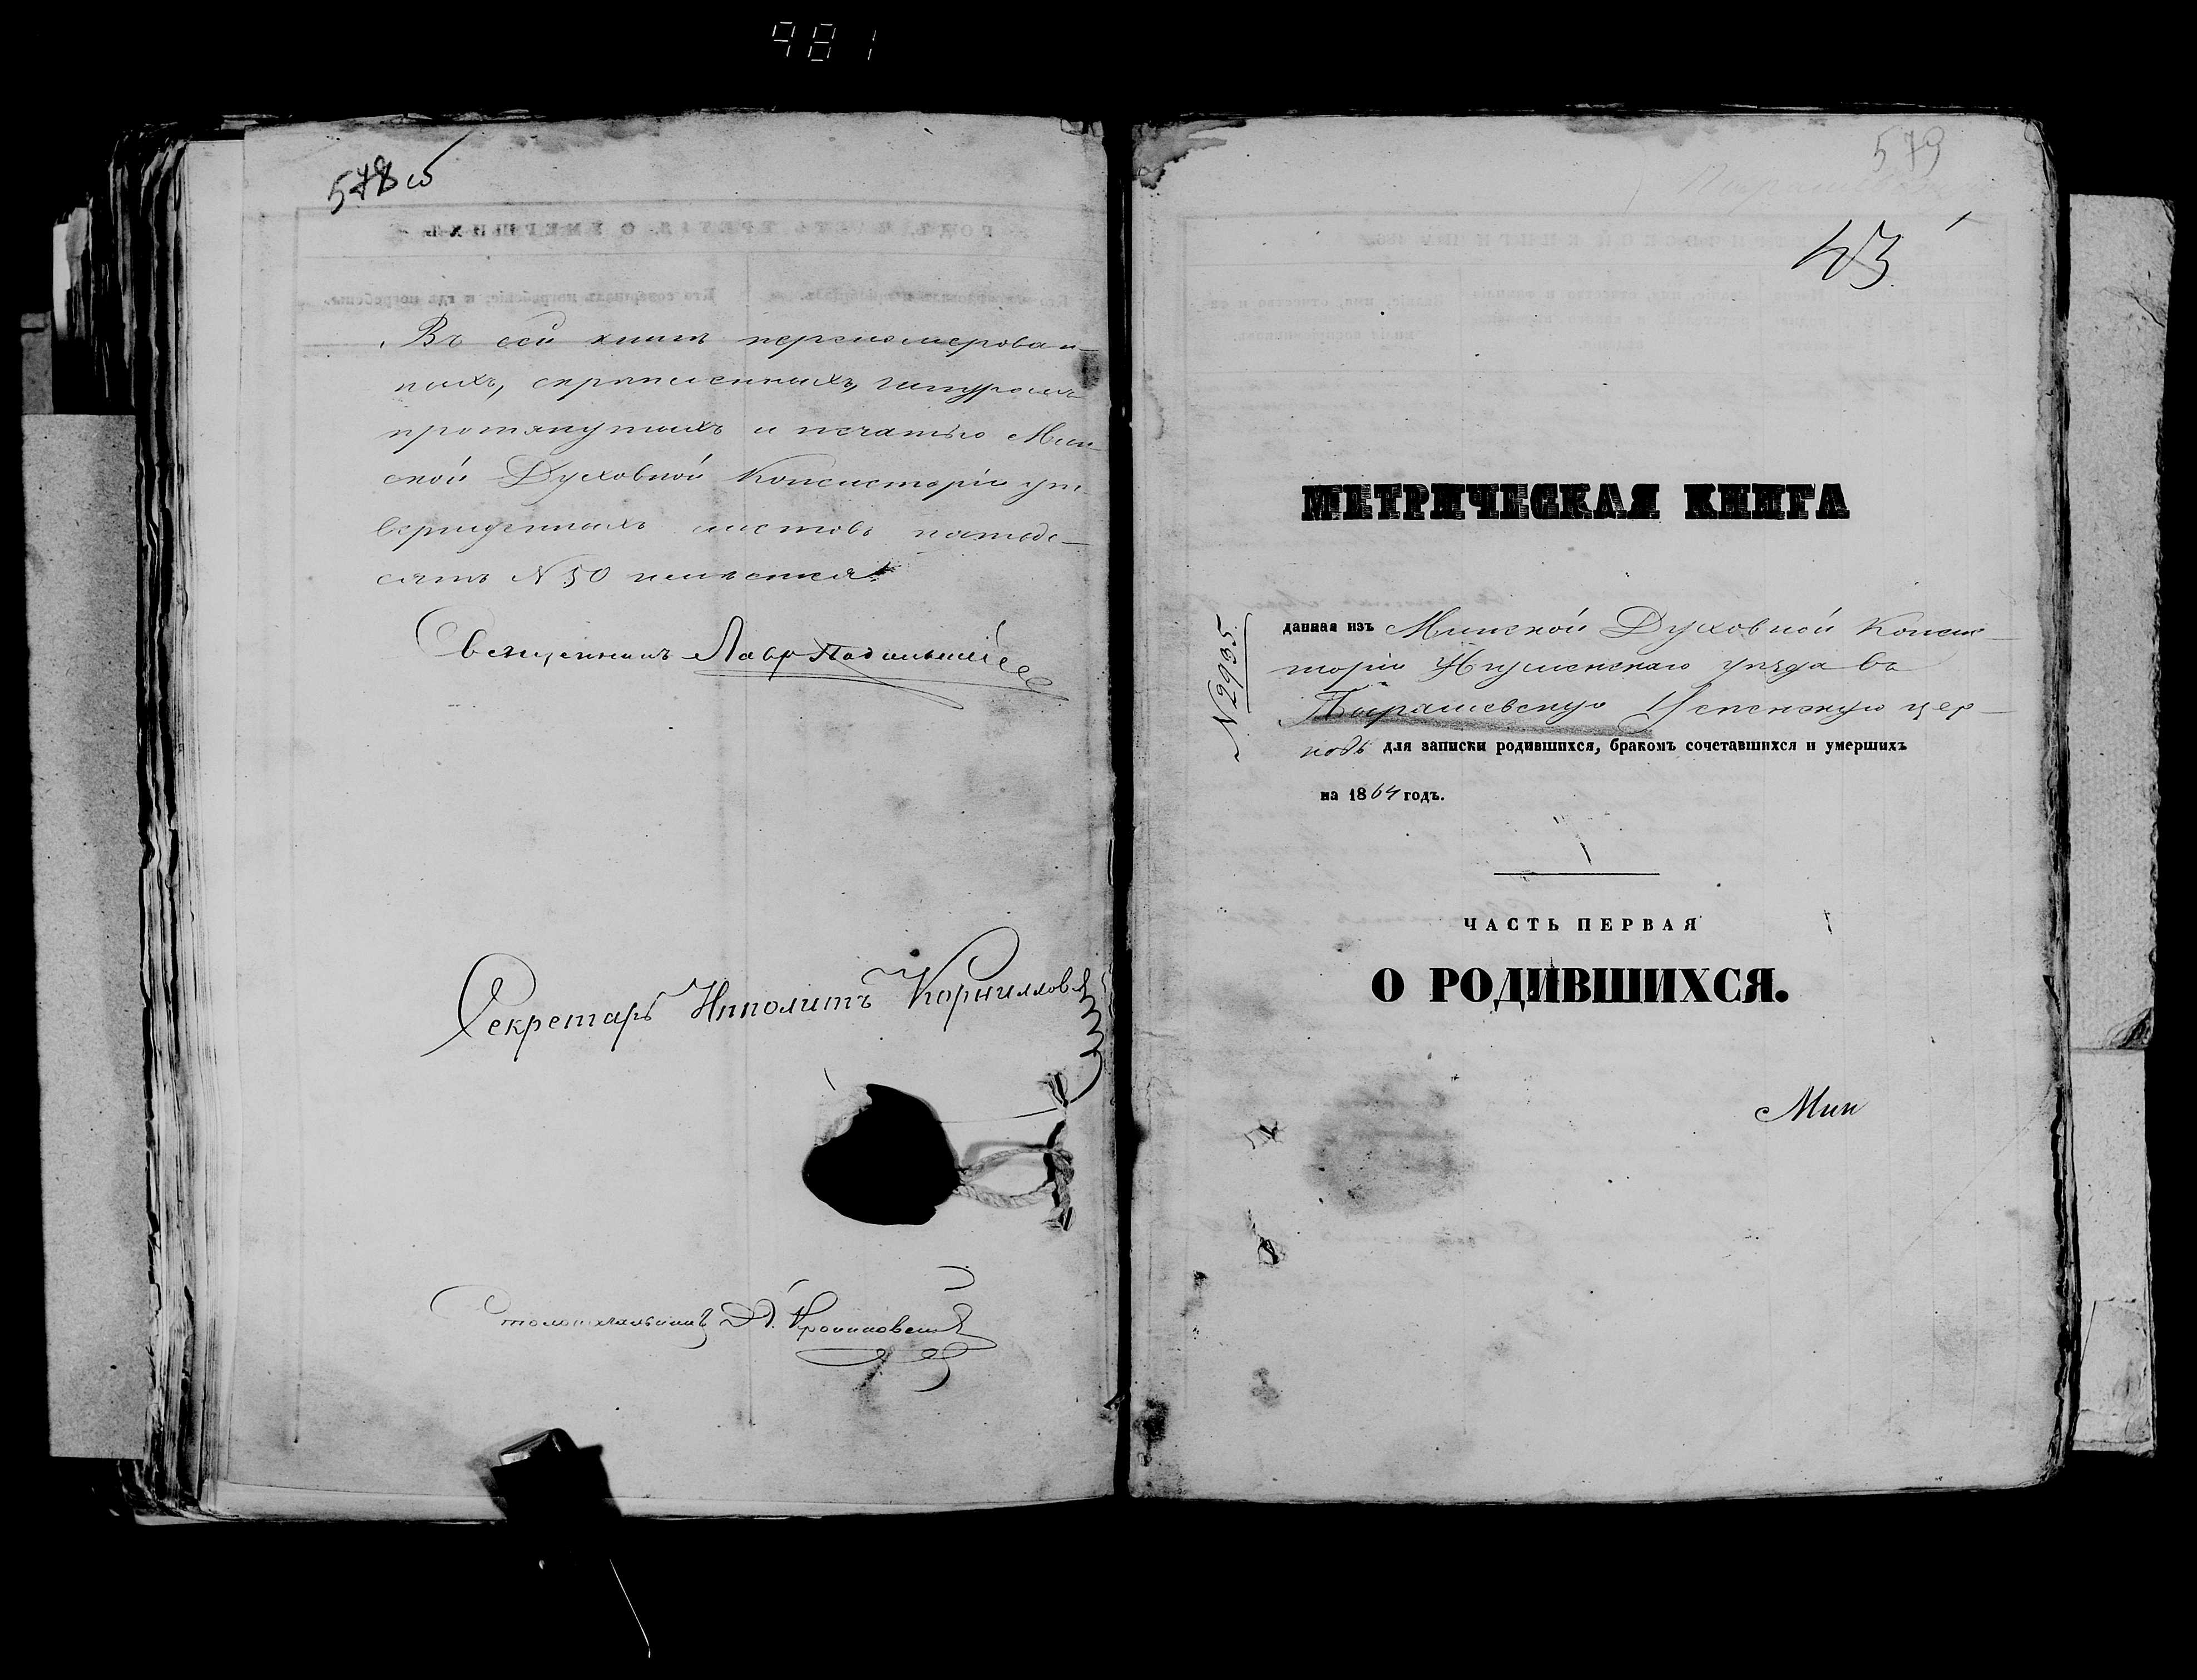 981
578 об
Въ сей книгѣ перенумерован-
ныхъ, скрѣпленныхъ, шнуромъ
протянутыхъ и печатью Мин-
ской Духовной Консисторіи ут-
вержденныхъ листовъ пятьде-
сятъ N 50 имѣется
Священникъ Лавр
Секретарь Ипполитъ Корнилловъ
Столоначальникъ
579
43
МЕТРИЧЕСКАЯ КНИГА
N 2935
данная изъ Минской Духовной Консис-
торіи Игуменскаго уѣзда въ
Успенскую цер-
ковь для записки родившихся, бракомъ сочетавшихся и умершихъ
на 1864 годъ.
ЧАСТЬ ПЕРВАЯ
О РОДИВШИХСЯ.
Мин